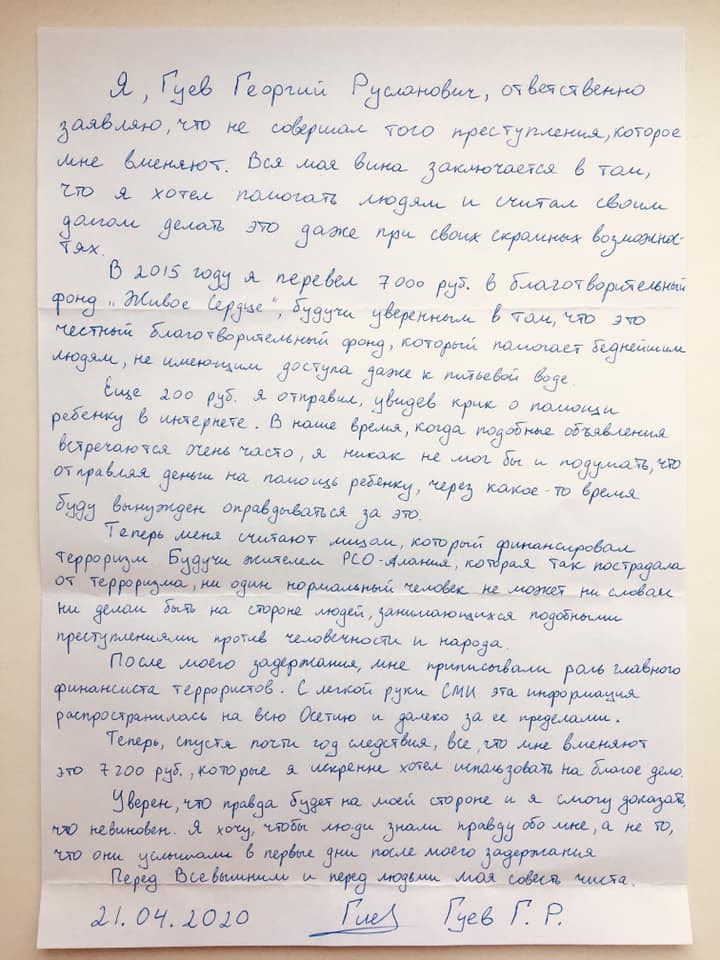 Я, Гуев Георгий Русланович, ответственно
заявляю, что не совершал того преступления, которое
мне вменяют. Вся моя вина заключается в том,
что я хотел помогать людям и считал своим
долгом делать это даже при своих скромных возможнос-
тях.
В 2015 году я перевел 7000 руб. в благотворительный
фонд „Живое Сердце", будучи уверенным в том, что это
честный благотворительный фонд, который помогает беднейшим
людям, не имеющим доступа даже к питьевой воде.
Еще 200 руб. я отправил, увидев крик о помощи
ребенку в интернете. В наше время, когда подобные объявления
встречаются очень часто, я никак не мог бы и подумать, что
отправляя деньги на помощь ребенку, через какое-то время
буду вынужден оправдываться за это.
Теперь меня считают лицом, который финансировал
терроризм. Будучи жителем РСО-Алания, которая так пострадала
от терроризма, ни один нормальный человек не может ни словом
ни делом быть на стороне людей, занимающихся подобными
преступлениями против человечности и народа.
После моего задержания, мне приписывали роль главного
финансиста террористов. С легкой руки СМИ эта информация
распространилась на всю Осетию и далеко за ее пределами.
Теперь, спустя почти год следствия, все, что мне вменяют
это 7200 руб., которые я искренне хотел использовать на благое дело.
Уверен, что правда будет на моей стороне и я смогу доказать,
что невиновен. Я хочу, чтобы люди знали правду обо мне, а не то,
что они услышали в первые дни после моего задержания
Перед Всевышним и перед людьми моя совесть чиста.
21.04.2020 Гуев Гуев Г. Р.